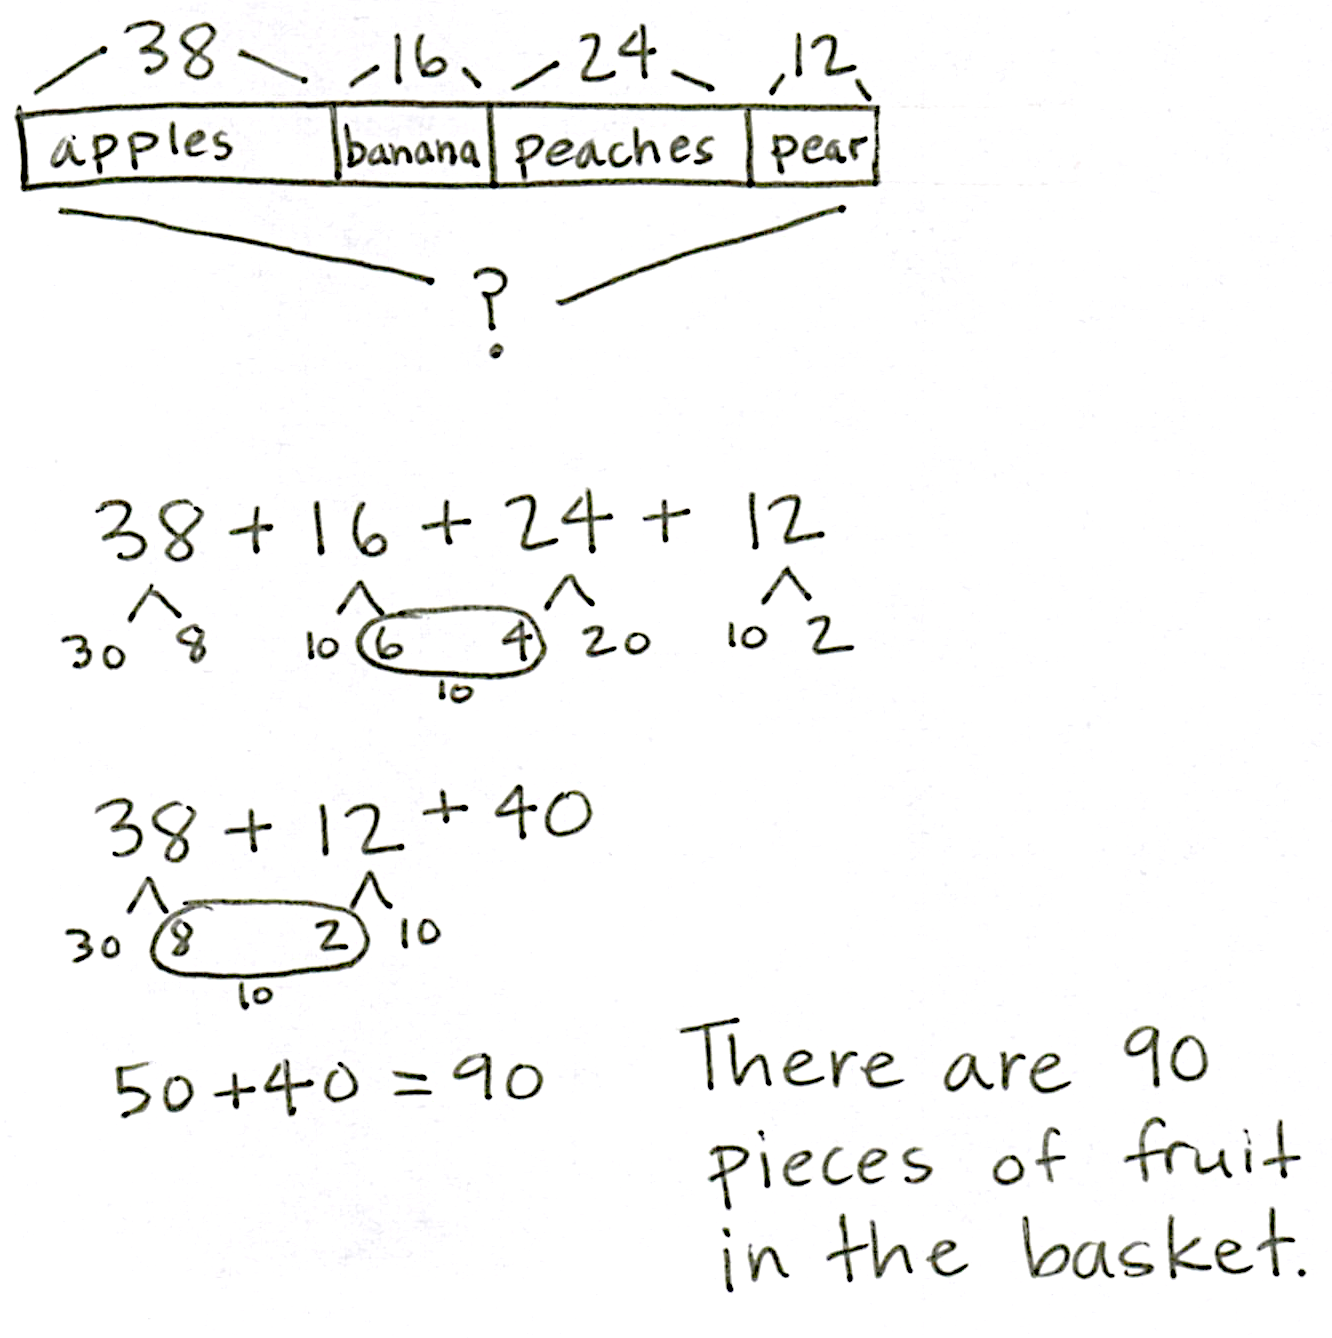 38 16 24 12
apples banana peaches pear
?
38 + 16 + 24 + 12
30 8 10 6 4 20 10 2
10
38 + 12 + 40
30 8 2 10
10
50 + 40 = 90
There are 90
pieces of fruit
in the basket.